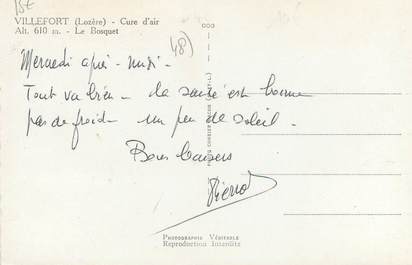 VILLEFORT (Lozère) - Cure d'air
Alt. 610 m. - Le Bosquet
(48)
Mercredi après-midi -
Tout va bien - la santé est bonne
pas de froid - un peu de soleil -
Bons baisers
Pierrot
PHOTOGRAPHIE VÉRITABLE
Reproduction Interdite